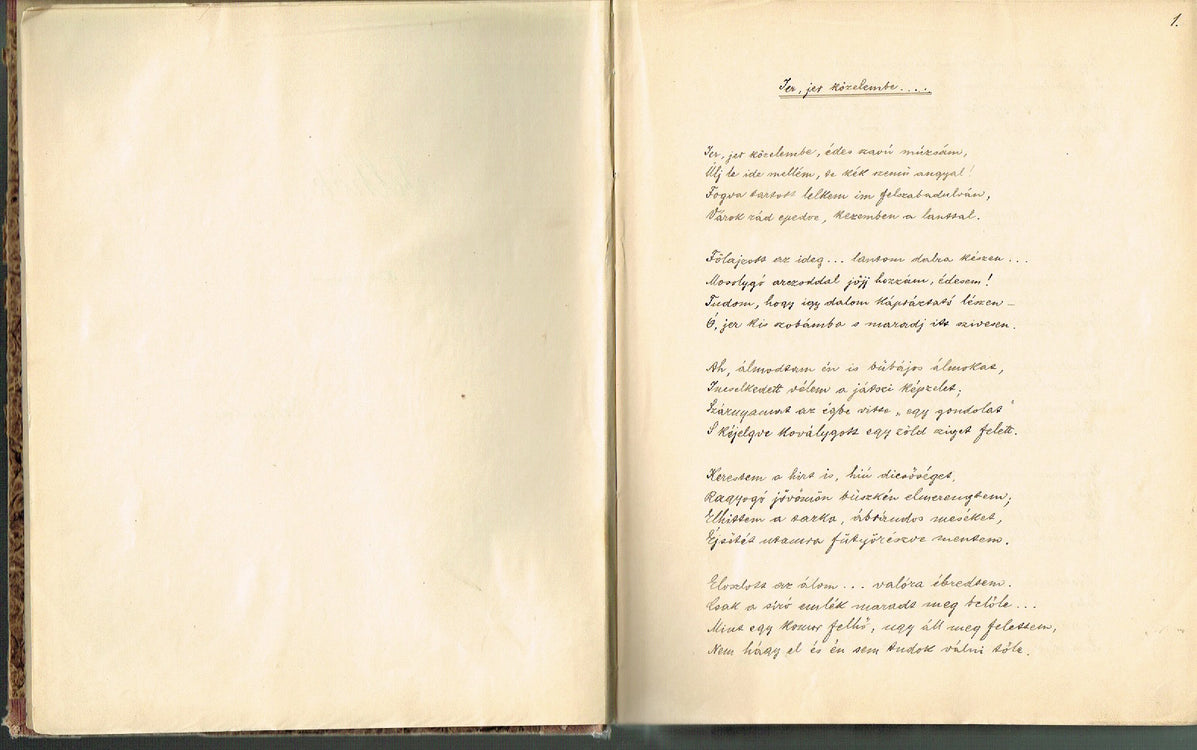 1.
Jer, jer közelembe....
Jer, jer közelembe, édes szavú múzsám,
Ülj le ide mellém, te kék szemű angyal!
Fogva tartott lelkem im felszabadulván,
Várok rád epedve, kezemben a lanttal.
Fölajzott az ideg... lantom dalra készen...
Mosolygó arczoddal jőjj hozzám, édesem!
Tudom, hogy igy dalom kápráztató lészen –
Ó, jer kis szobámba s maradj itt szivesen.
Ah, álmodtam én is bűbájos álmokat,
Incselkedett vélem a játszi képzelet;
Szárnyamat az égbe vitte „egy gondolat"
S kéjelgve kóválygott egy zöld sziget felett.
Kerestem a hirt is, hiú dicsőséget,
Ragyogó jövőmön büszkén elmerengtem;
Elhittem a tarka, ábrándos meséket,
Éjsötét utamra fütyörészve mentem.
Eloszlott az álom... valóra ébredtem.
Csak a síró emlék maradt meg belőle...
Mint egy komor felhő, ugy áll meg felettem,
Nem hágy el és én sem tudok válni tőle.